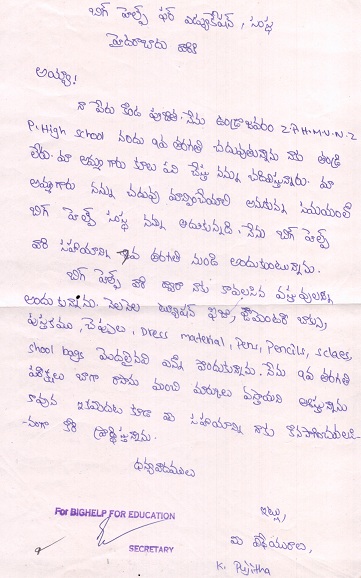 బిగ్ హెల్ప్ ఫర్ ఎడ్యుకేషన్, సంస్థ
హైదరాబాదు వారికి
అయ్యా!
నా పేరు కొండ పూజిత. నేను ఉండ్రాజవరం Z.P.H.M.U.N.Z
P. High school నందు ఇవ తరగతి చదువుతున్నాను నాకు తండ్రి
లేరు. మా అమ్మగారు కూలి పని చేస్తూ నన్ను చదివిస్తున్నారు. మా
అమ్మగారు నన్ను చదువు మాన్పించేయాలి అనుకున్న సమయంలో
బిగ్ హెల్ప్ సంస్థ నన్ను ఆదుకున్నది. నేను బిగ్ హెల్ప్
వారి సహాయాన్ని వ తరగతి నుండి అందుకుంటున్నాను.
బిగ్ హెల్ప్ వారి ద్వారా నాకు కావలసిన వస్తువులన్నీ
అందుకున్నాను. నెలనెల ట్యూషన్ ఫీజు, జామెంటరీ బాక్సు,
పుస్తకము, చెప్పులు, Dress material, Pens, Pencils, sclaes,
shool bags మొదలైనవి ఎన్నో పొందుతున్నాను. నేను ఇవ తరగతి
పరీక్షలు బాగా రాసాను మంచి మార్కులు వస్తాయని ఆశిస్తున్నాను
కావున ఇకముందు కూడా మీ సహాయాన్ని నాకు కొనసాగించవలసి
-నంగా కోరి ప్రార్థిస్తున్నాను.
ధన్యవాదములు
For BIGHELP FOR EDUCATION
SECRETARY
ఇట్లు,
మీ విధేయురాలు,
K. Pujitha